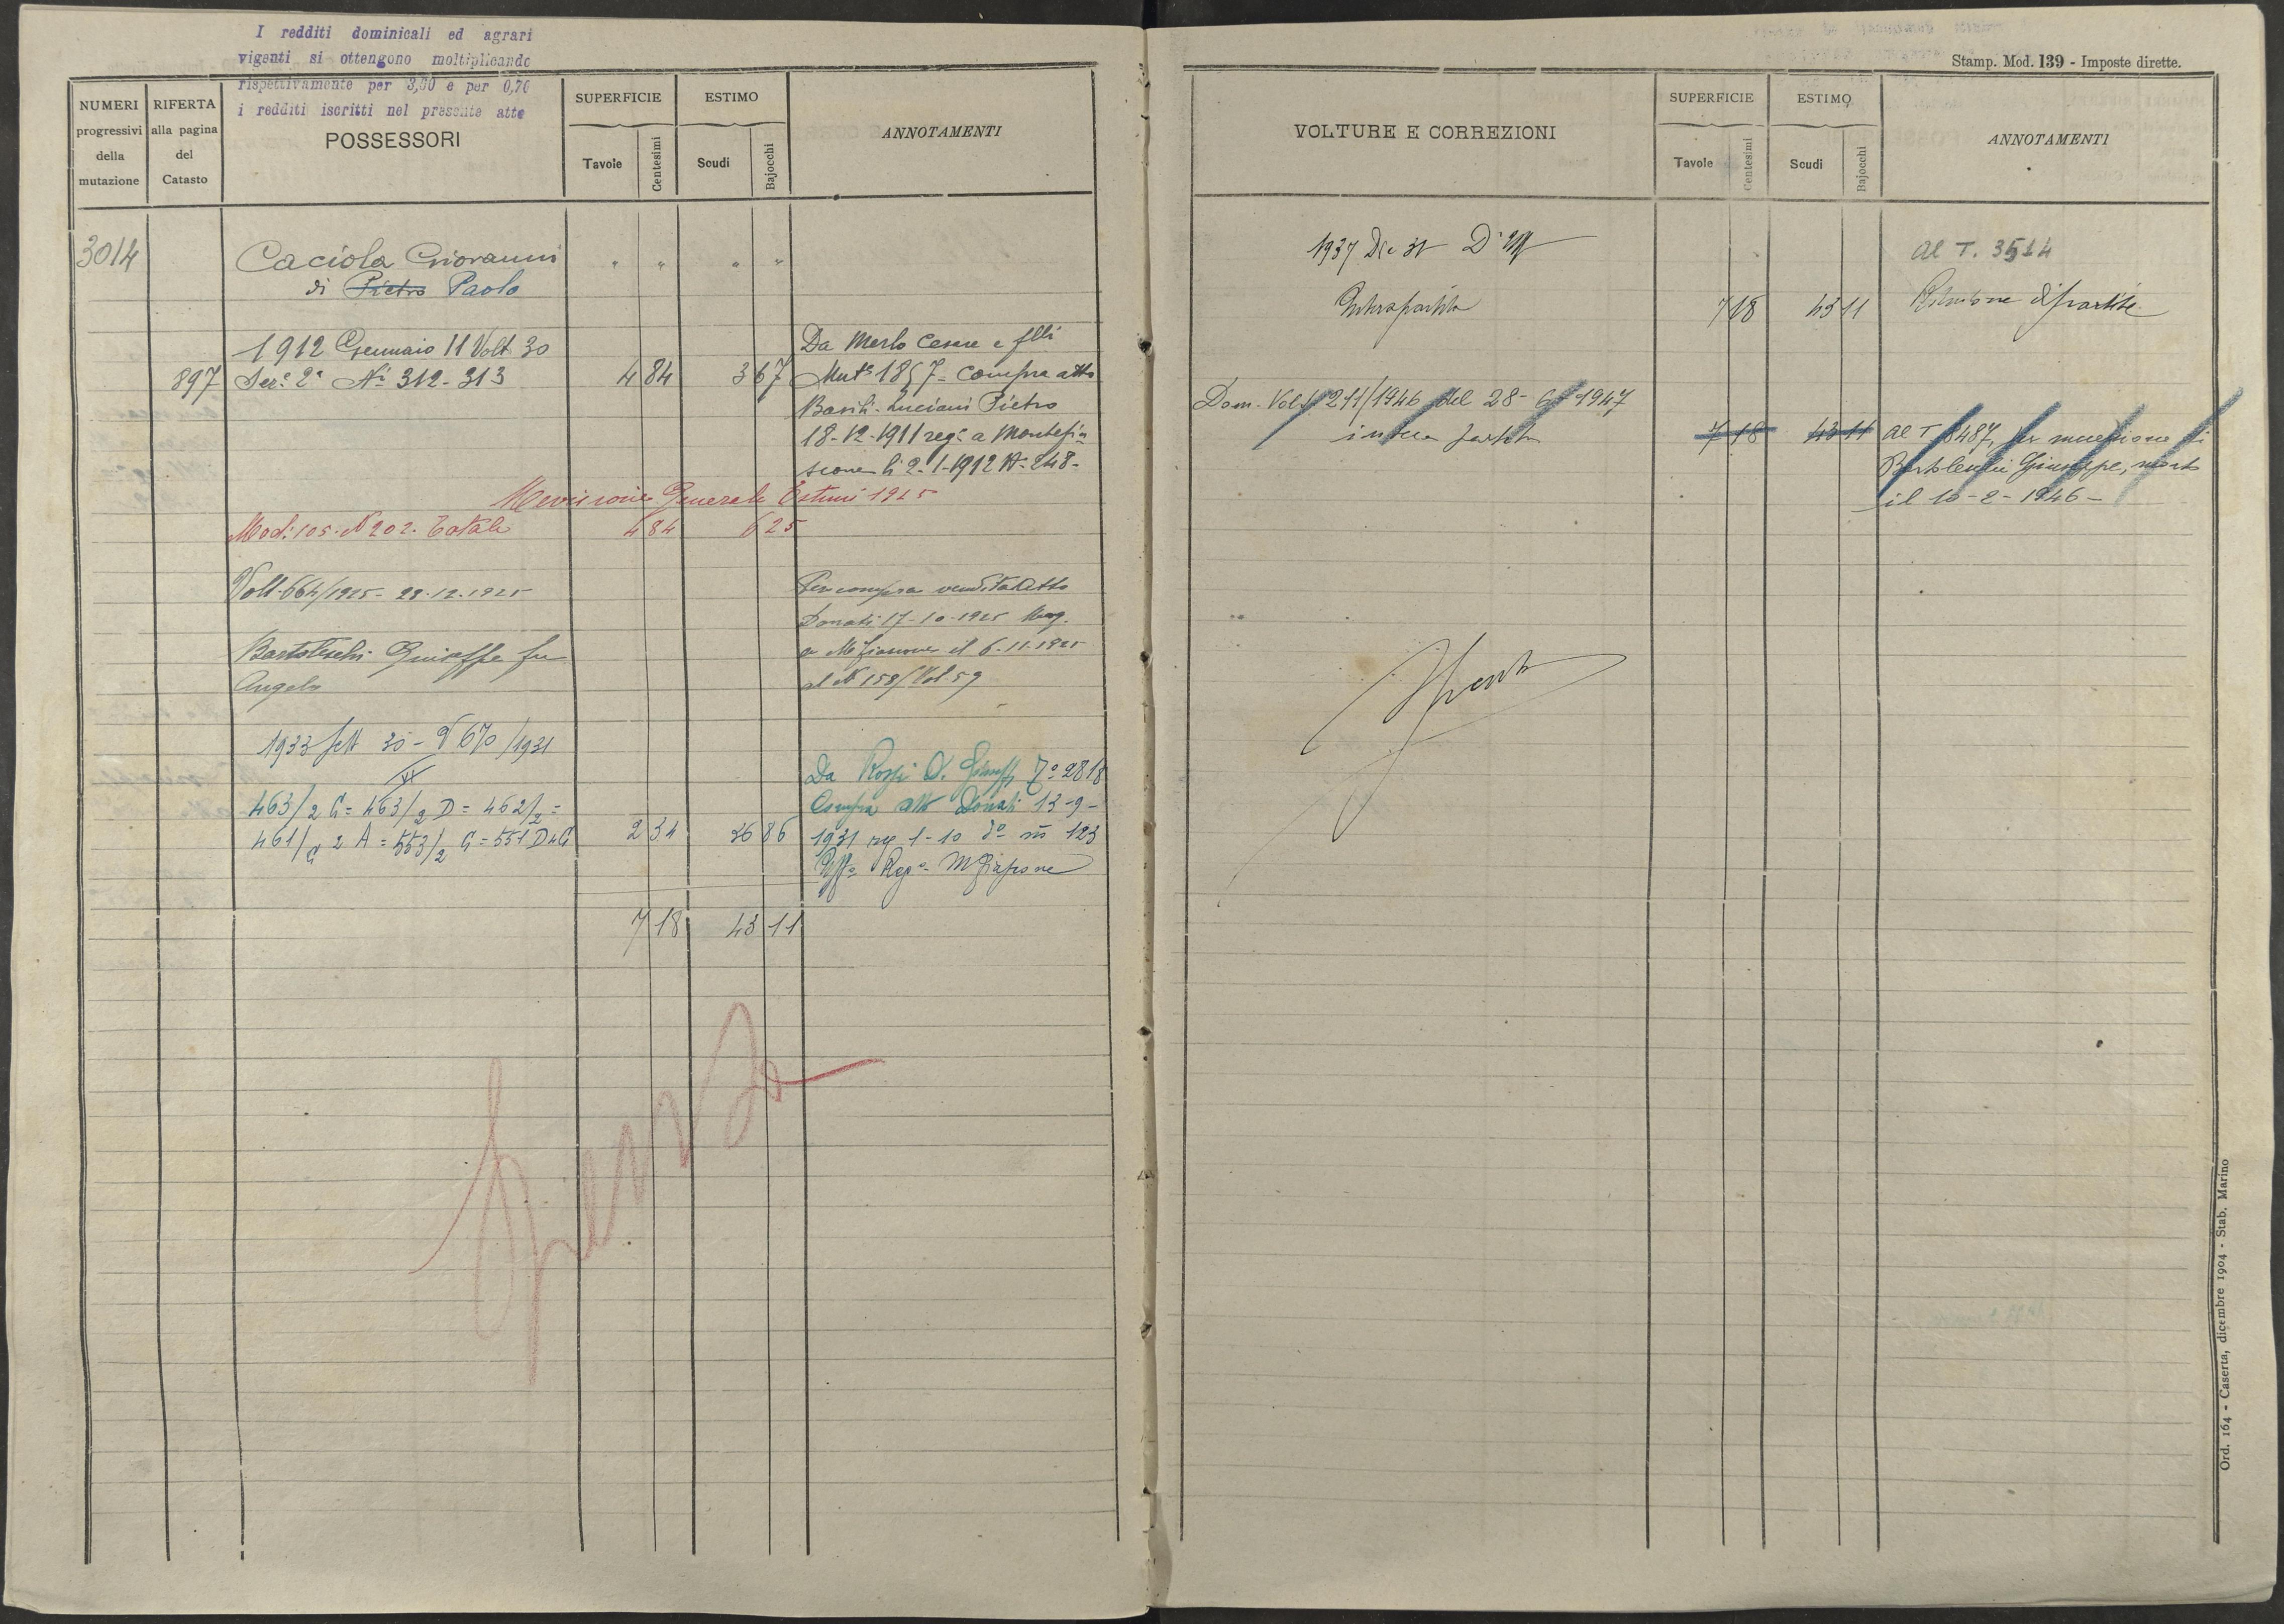 I redditi dominicali ed agrari
vigenti si ottengono moltiplicando
rispettivamente per 3,60 e per 0,70
i redditi iscritti nel presente atto
NUMERI
progressivi
della
mutazione
RIFERTA
alla pagina
del
Catasto
POSSESSORI
SUPERFICIE
Tavole
Centesimi
ESTIMO
Scudi
Bajocchi
ANNOTAMENTI
3014
Caciola Giovanni " " " "
di Pietro Paolo
1912 Gennaio 11 Volt. 30
897 Sez.e 2a Ni 312-313 4 84 3 67
Da Merlo Cesare e flli
Muta 1857 = Compra atto
Basili-Luciani Pietro
18-12-1911 rega a Montefia
scone li 2-1-1912 N. 248-
Revisione Generale Estimi 1925
Mod. 105. N 202. Totale 4 84 6 25
Volt. 664/1925 - 28.12.1925
Bartoleschi Giuseppe fu
Angelo
Per compra vendita Atto
Donati 17-10-1925 Reg.
a Mfiascone il 6-11-1925
al N 158/Vol 59
1933 Sett 30 - V 670/1931
463/2 C = 463/2 D = 462/2 =
461/2 A = 553/2 C = 551 D 2 34 36 86
Da Rossi D. Gius. 2818
Compra atto Donati 13-9-
1931 reg 1-10 do m 123
Uffo Rego Mfiascone
7 18 43 11
Spento
Stamp. Mod. 139 - Imposte dirette.
VOLTURE E CORREZIONI
SUPERFICIE
Tavole
Centesimi
ESTIMO
Scudi
Bajocchi
ANNOTAMENTI
1937 Dic 31 D'Uff
Intera partita 7 18 43 11
Al T. 3514
Riunione di partite
Dom. Volt. 211/1946 del 28-6-1947
intera partita 7 18 43 11
Al T 3487, per successione di
Bartoleschi Giuseppe, morto
il 10-2-1946-
Spenta
Ord. 164 - Caserta, dicembre 1904 - Stab. Marino